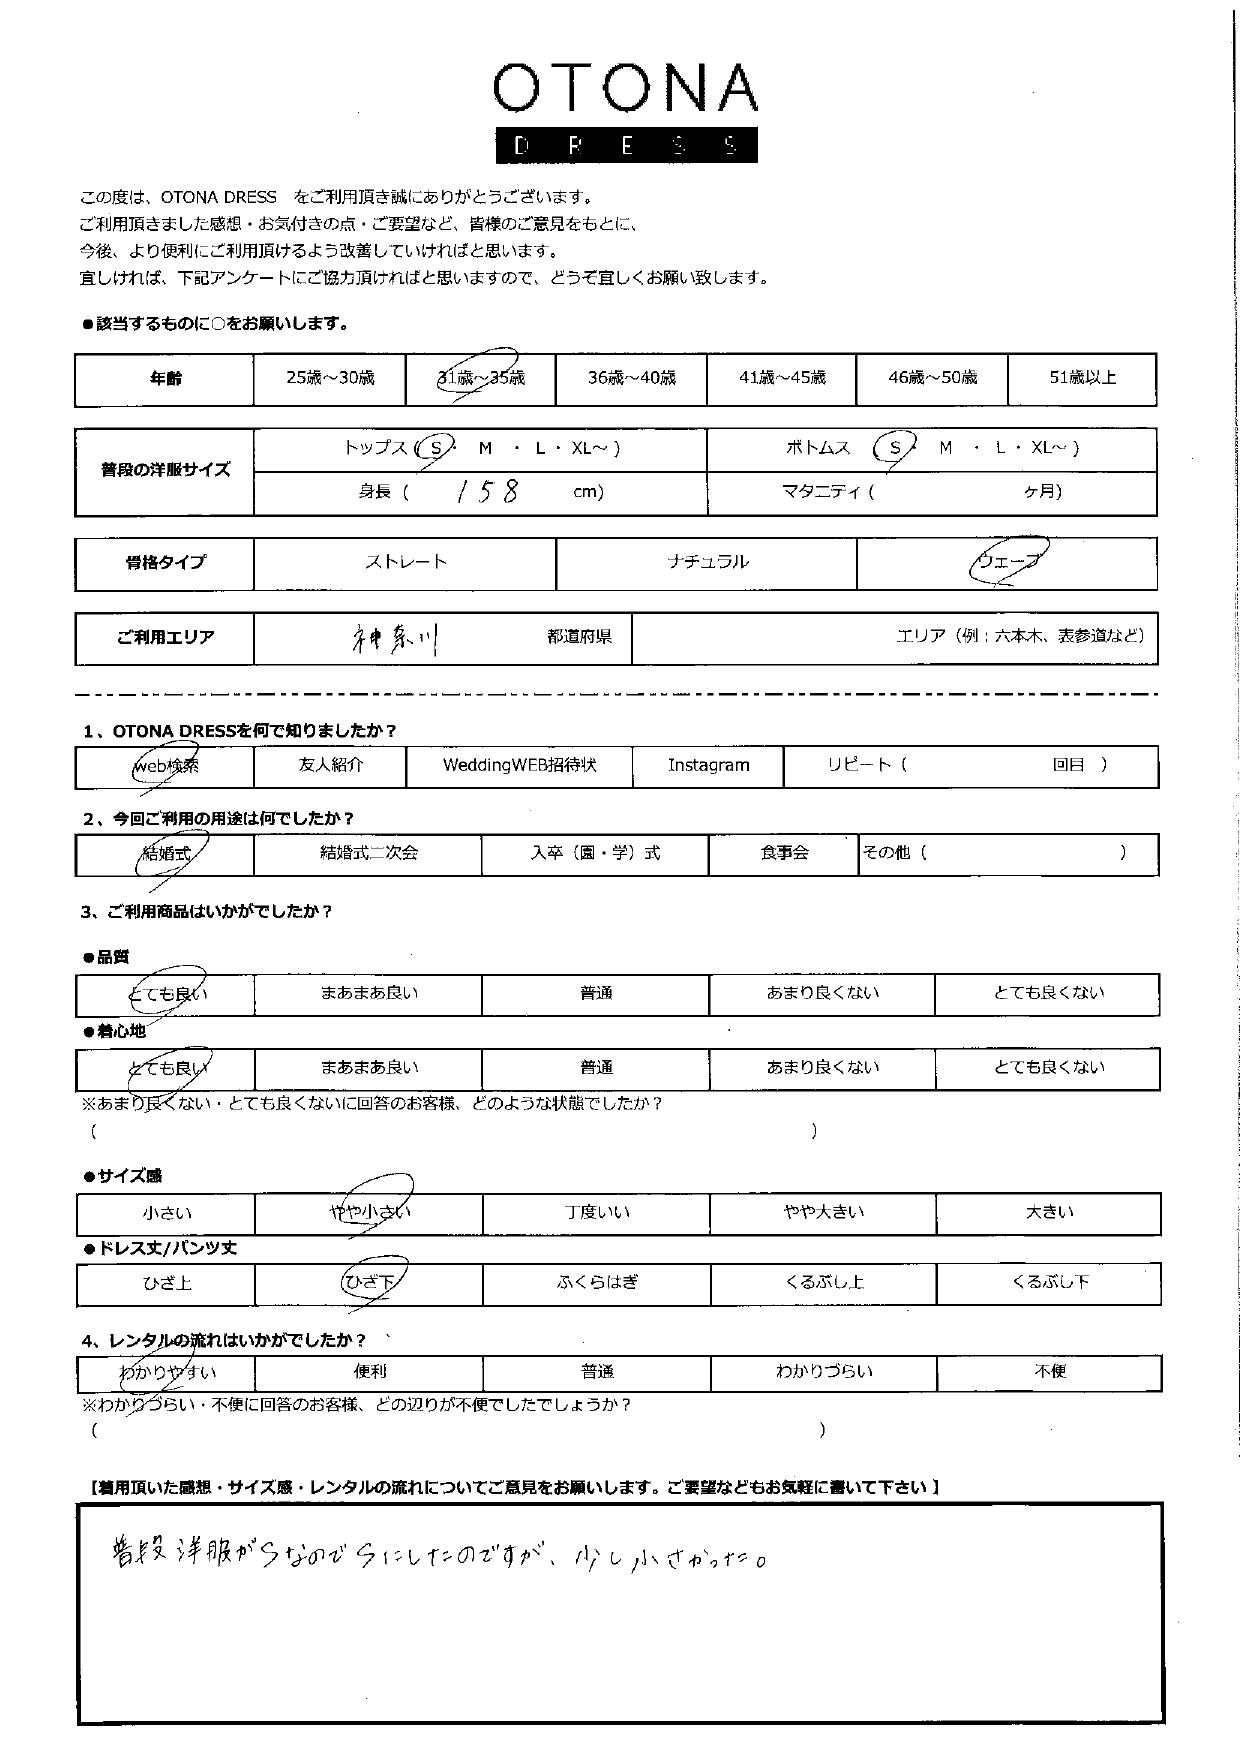 OTONA
DRESS
この度は、OTONA DRESS　をご利用頂き誠にありがとうございます。
ご利用頂きました感想・お気付きの点・ご要望など、皆様のご意見をもとに、
今後、より便利にご利用頂けるよう改善していければと思います。
宜しければ、下記アンケートにご協力頂ければと思いますので、どうぞ宜しくお願い致します。
●該当するものに○をお願いします。
年齢 25歳～30歳 31歳～35歳 36歳～40歳 41歳～45歳 46歳～50歳 51歳以上
普段の洋服サイズ トップス ( S ・ M ・ L ・ XL～ ) ボトムス ( S ・ M ・ L ・ XL～ )
身長 ( 158 cm) マタニティ ( ヶ月)
骨格タイプ ストレート ナチュラル ウェーブ
ご利用エリア 神奈川 都道府県 エリア（例：六本木、表参道など）
1、OTONA DRESSを何で知りましたか？
web検索 友人紹介 WeddingWEB招待状 Instagram リピート（ 回目 ）
2、今回ご利用の用途は何でしたか？
結婚式 結婚式二次会 入卒（園・学）式 食事会 その他（ ）
3、ご利用商品はいかがでしたか？
●品質
とても良い まあまあ良い 普通 あまり良くない とても良くない
●着心地
とても良い まあまあ良い 普通 あまり良くない とても良くない
※あまり良くない・とても良くないに回答のお客様、どのような状態でしたか？
（ ）
●サイズ感
小さい やや小さい 丁度いい やや大きい 大きい
●ドレス丈/パンツ丈
ひざ上 ひざ下 ふくらはぎ くるぶし上 くるぶし下
4、レンタルの流れはいかがでしたか？
わかりやすい 便利 普通 わかりづらい 不便
※わかりづらい・不便に回答のお客様、どの辺りが不便でしたでしょうか？
（ ）
【着用頂いた感想・サイズ感・レンタルの流れについてご意見をお願いします。ご要望などもお気軽に書いて下さい 】
普段洋服がSなのでSにしたのですが、少し小さかった。